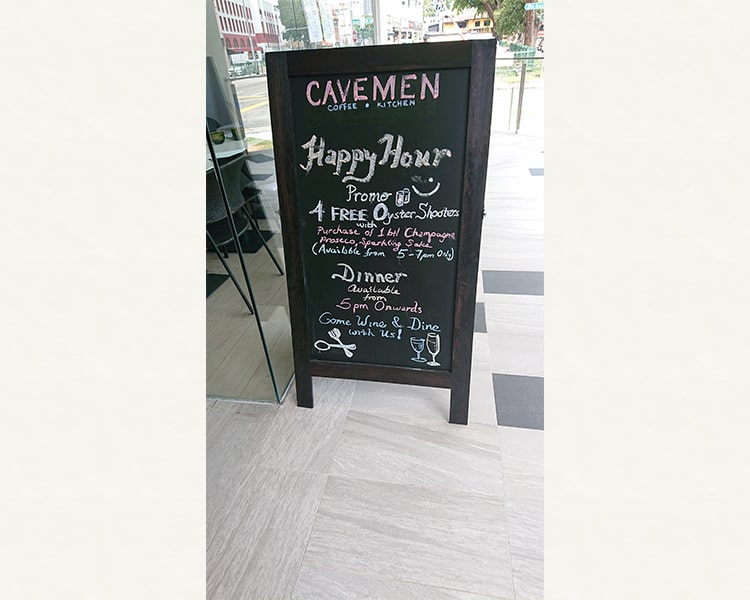 CAVEMEN
COFFEE • KITCHEN
Happy Hour
Promo
4 FREE Oyster Shooters
with
Purchase of 1 btl Champagne
Proseco, Sparkling Sake
(Available from 5-7pm Only)
Dinner
Available
from
5pm Onwards
Come Wine & Dine
with Us!